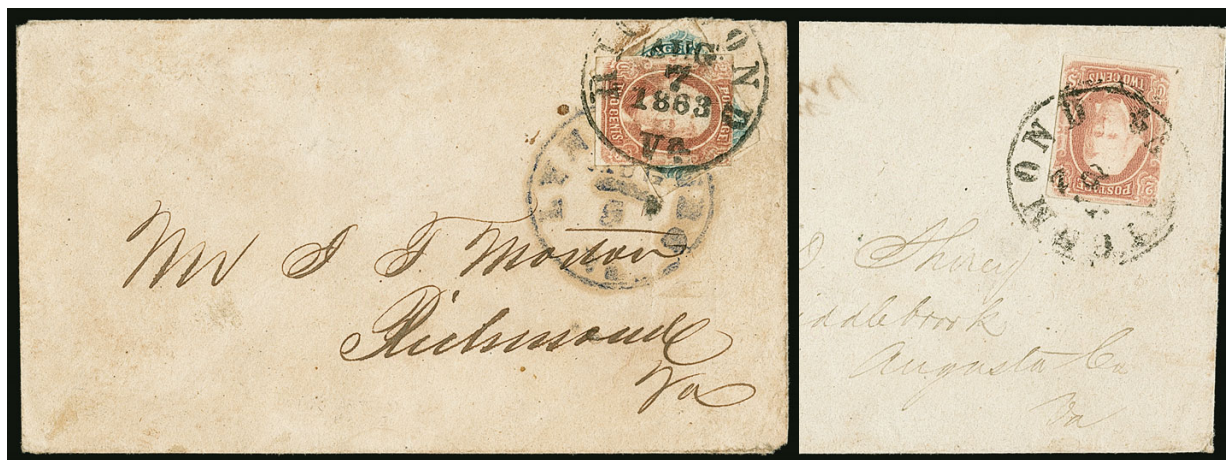 RICHMOND
AUG.
7
1863
VA.
TWO CENTS
POSTAGE
LYNCHBURG
AUG
Mr J T Morton
Richmond
Va
TWO CENTS
POSTAGE
RICHMOND
Shirey
Middlebrook
Augusta Co
Va